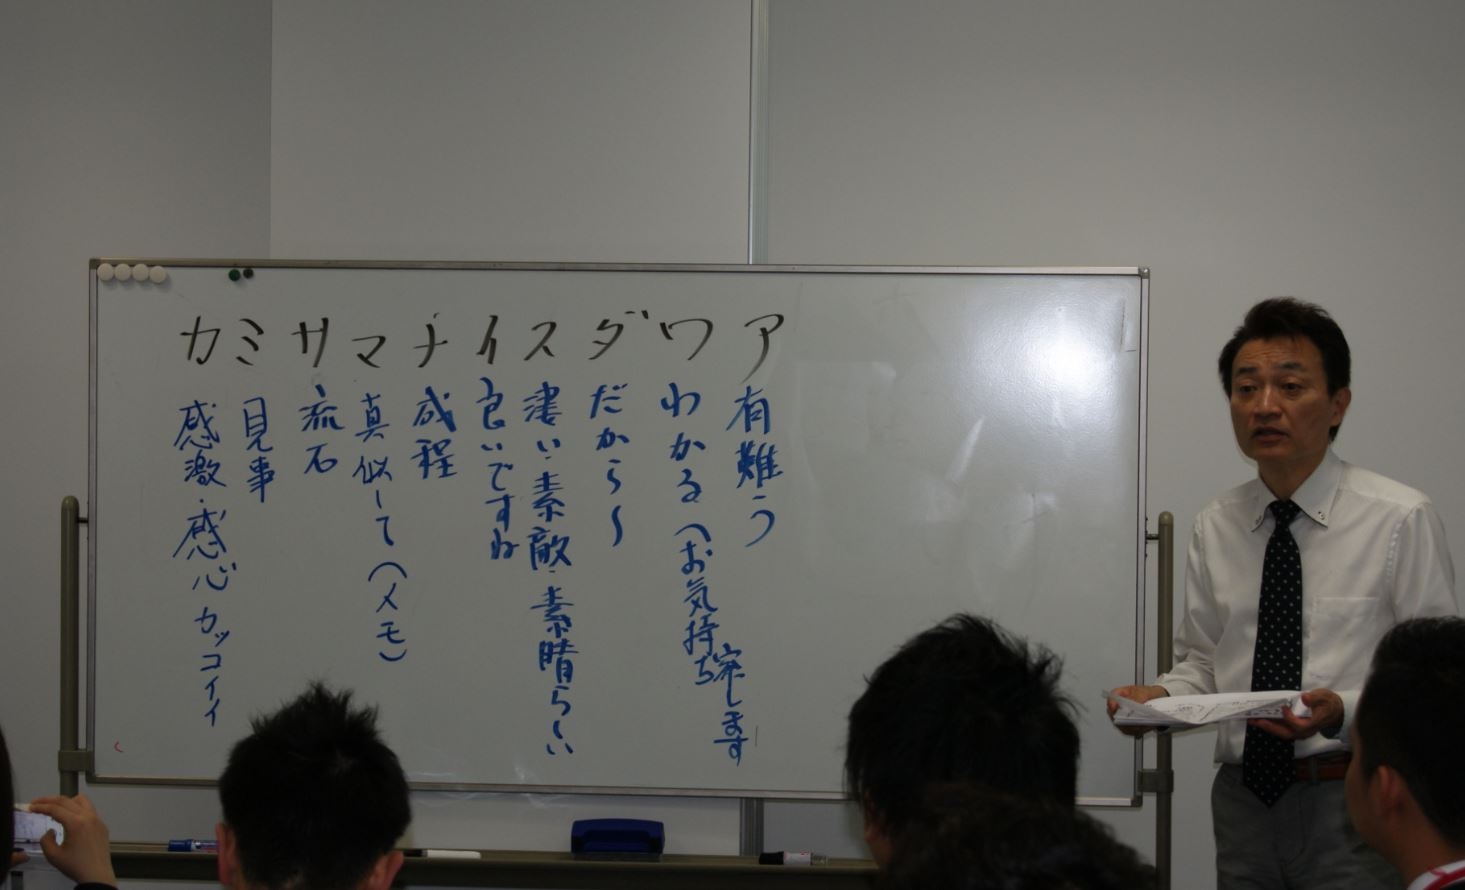 ア 有難う
ワ わかる(お気持ち察します
ダ だから〜
ス 凄い・素敵・素晴らしい
イ 良いですね
ナ 成程
マ 真似して(メモ)
サ 流石
ミ 見事
カ 感激・感心 カッコイイ